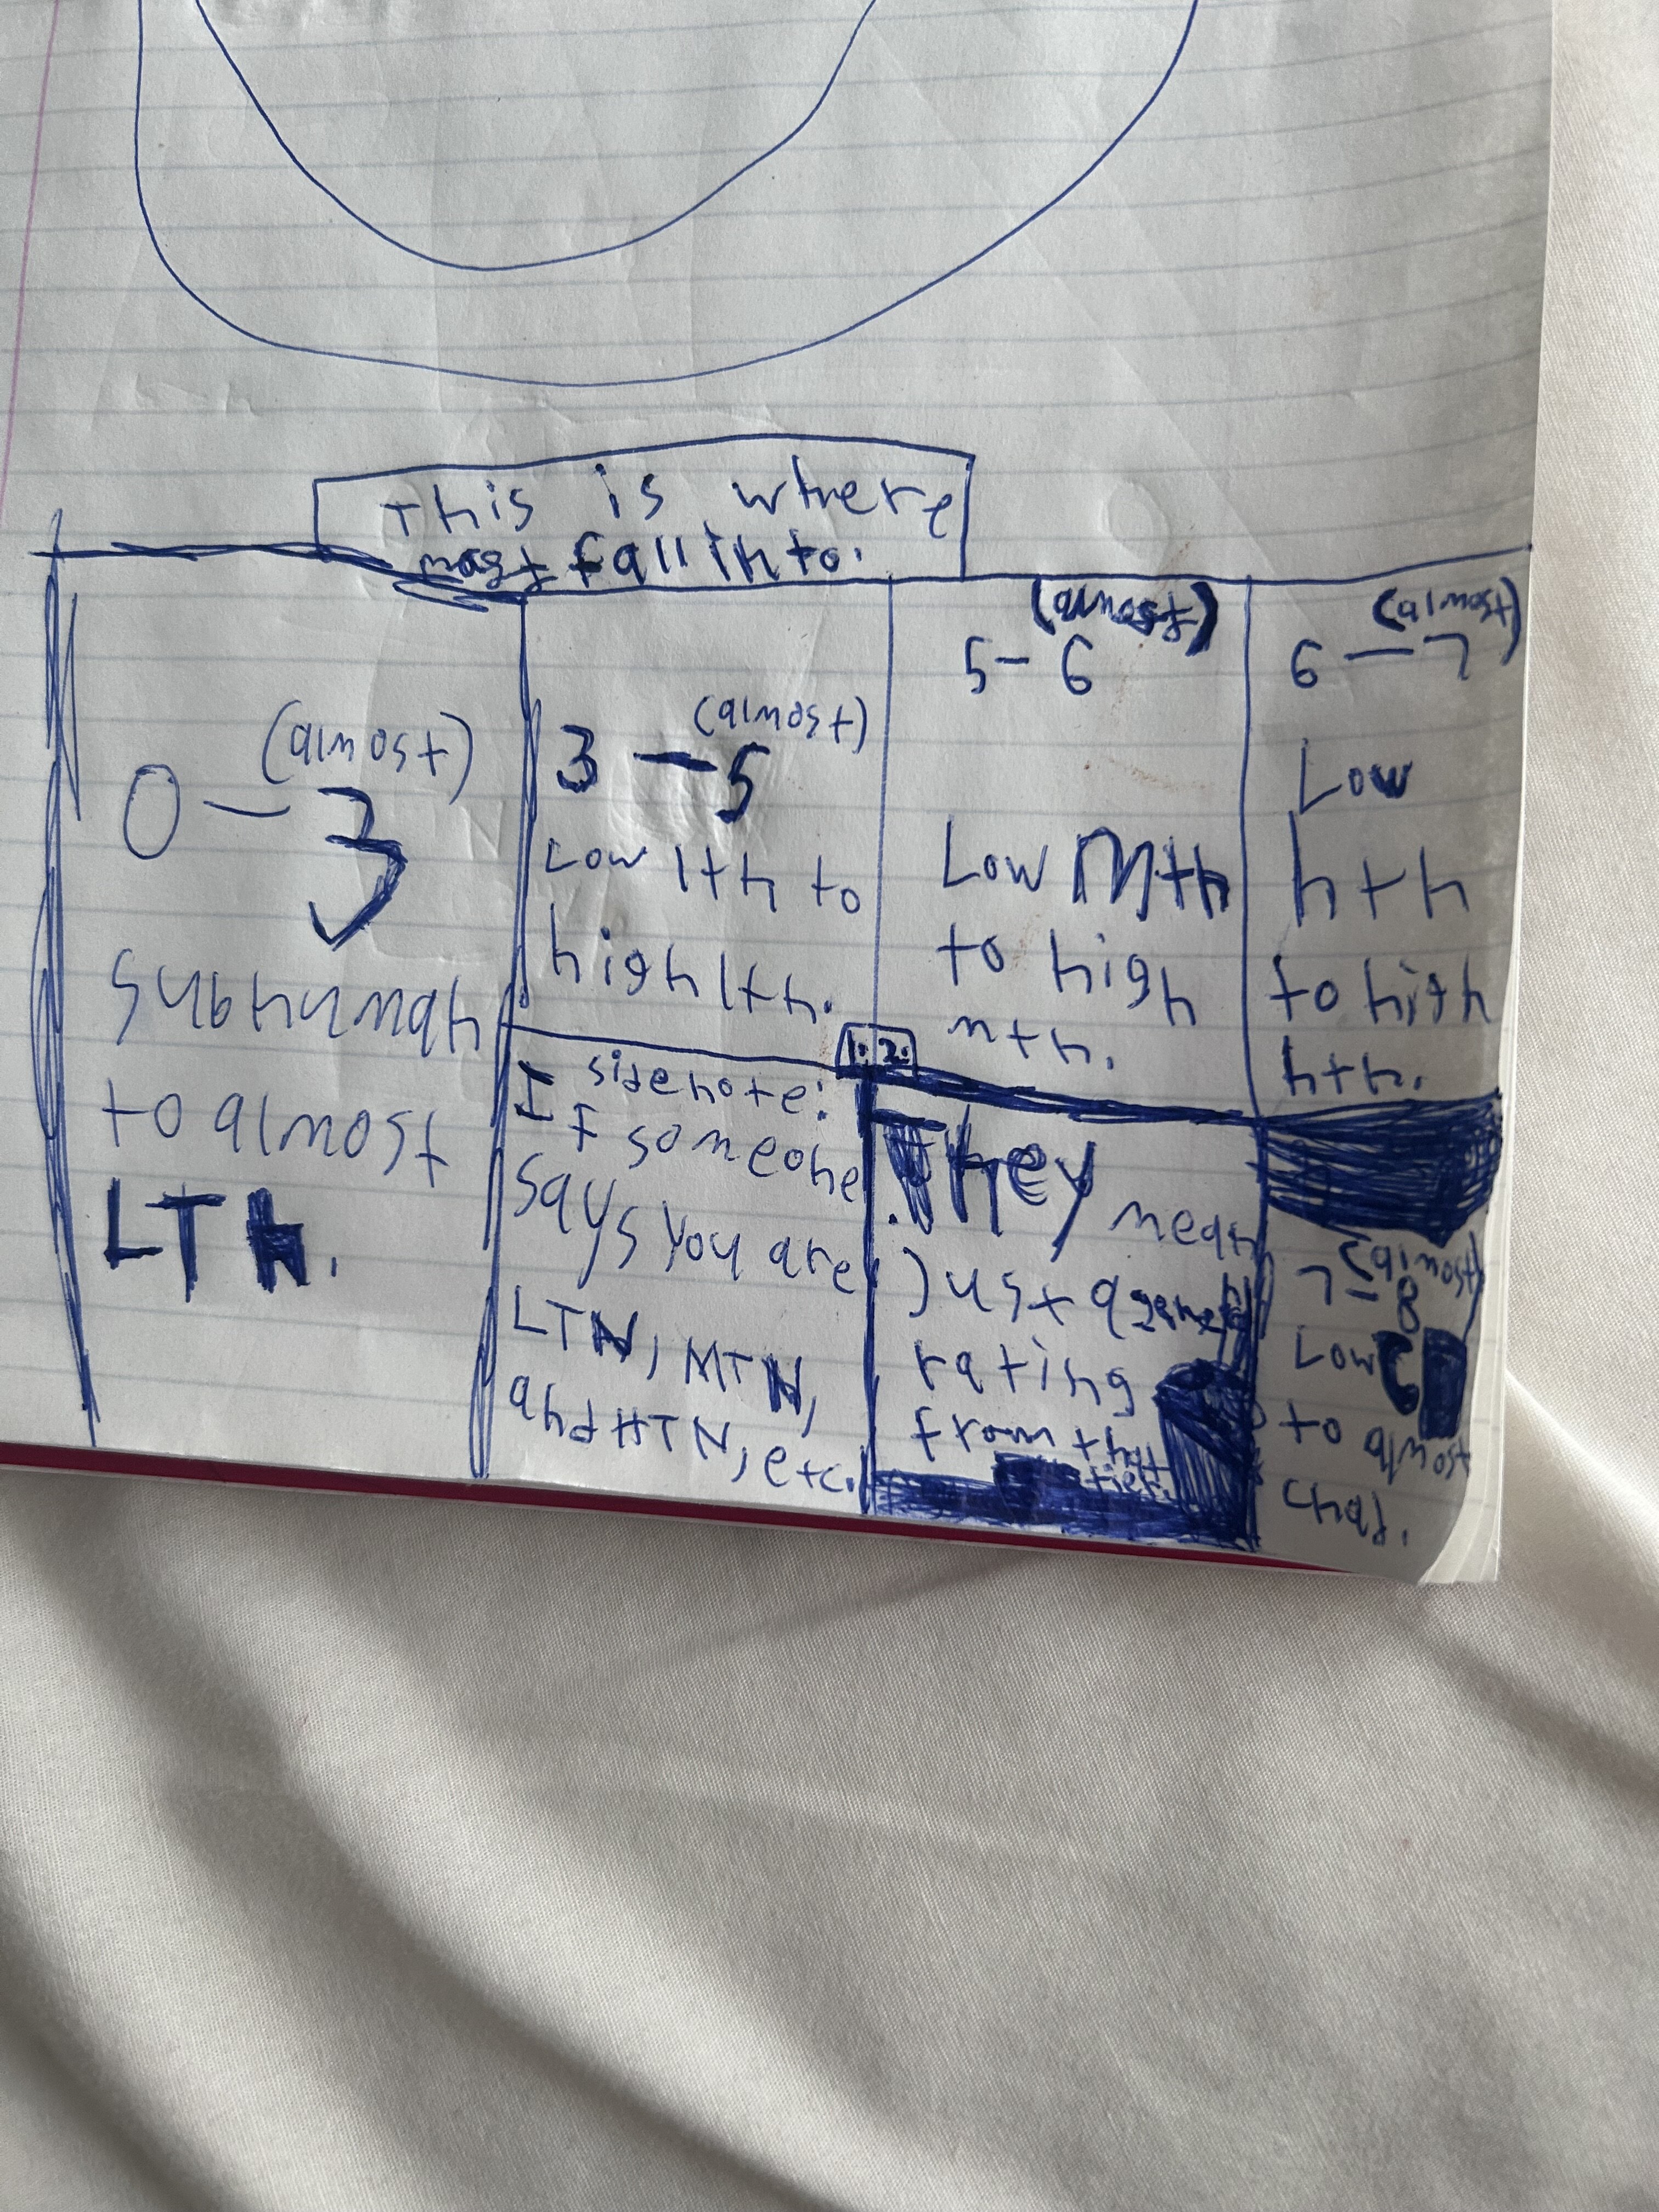 This is where
most fall into.
0 - 3 (almost)
subhuman
to almost
LTN.
3 - 5 (almost)
Low ltn to
high ltn.
(almost)
5 - 6
Low Mtn
to high
mtn.
(almost)
6 - 7
Low
htn
to high
htn.
1. 2.
sidenote:
If someone
says you are
LTN, MTN,
and HTN, etc.
They mean
just a general
rating
from that
tier.
(almost)
7 - 8
Low C
to almost
chad.